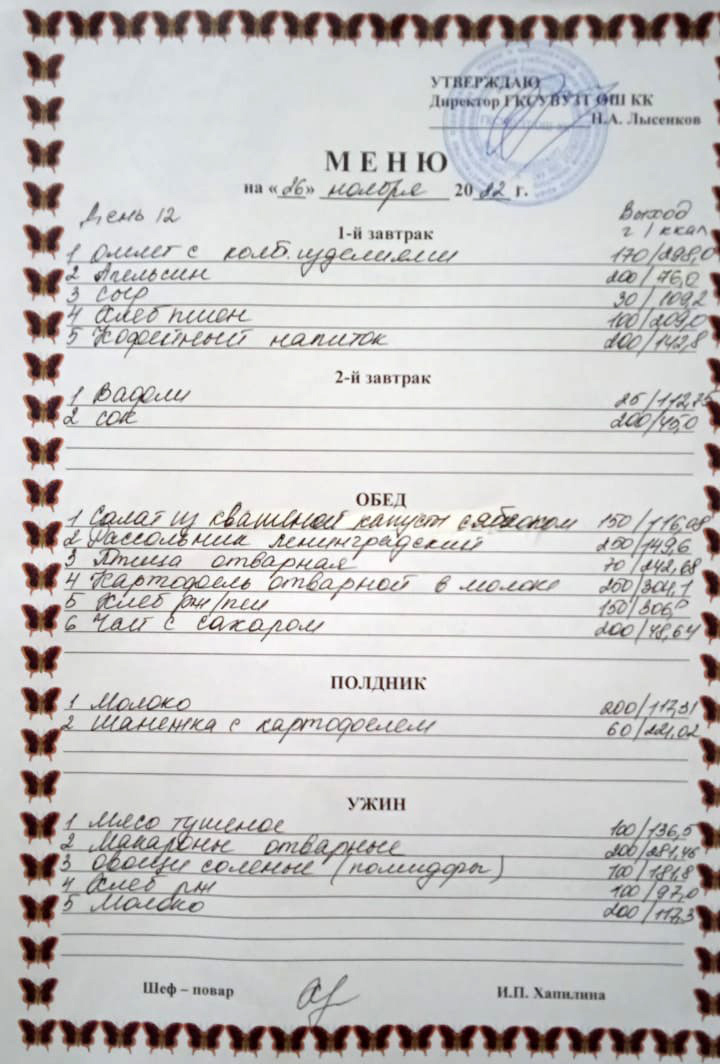 УТВЕРЖДАЮ
Директор ГКСУВУЗТ ОШ КК
Н.А. Лысенков
МЕНЮ
на «26» ноября 2022 г.
День 12 Выход
г / ккал
1-й завтрак
1 Омлет с колб. изделиями 170/298,0
2 Апельсин 200/76,0
3 Сыр 30/109,2
4 Хлеб пшен 100/209,0
5 Кофейный напиток 200/142,8
2-й завтрак
1 Вафли 25/112,75
2 Сок 200/45,0
ОБЕД
1 Салат из квашеной капуст с яблоком 150/116,08
2 Рассольник ленинградский 250/149,6
3 Птица отварная 70/242,68
4 Картофель отварной в молоке 250/304,1
5 Хлеб рж/пш 150/306,0
6 Чай с сахаром 200/48,64
ПОЛДНИК
1 Молоко 200/117,31
2 Шанежка с картофелем 60/221,02
УЖИН
1 Мясо тушеное 100/136,5
2 Макароны отварные 200/281,46
3 Овощи соленые (помидоры) 100/181,8
4 Хлеб рж 100/97,0
5 Молоко 200/117,3
Шеф – повар И.П. Хапилина